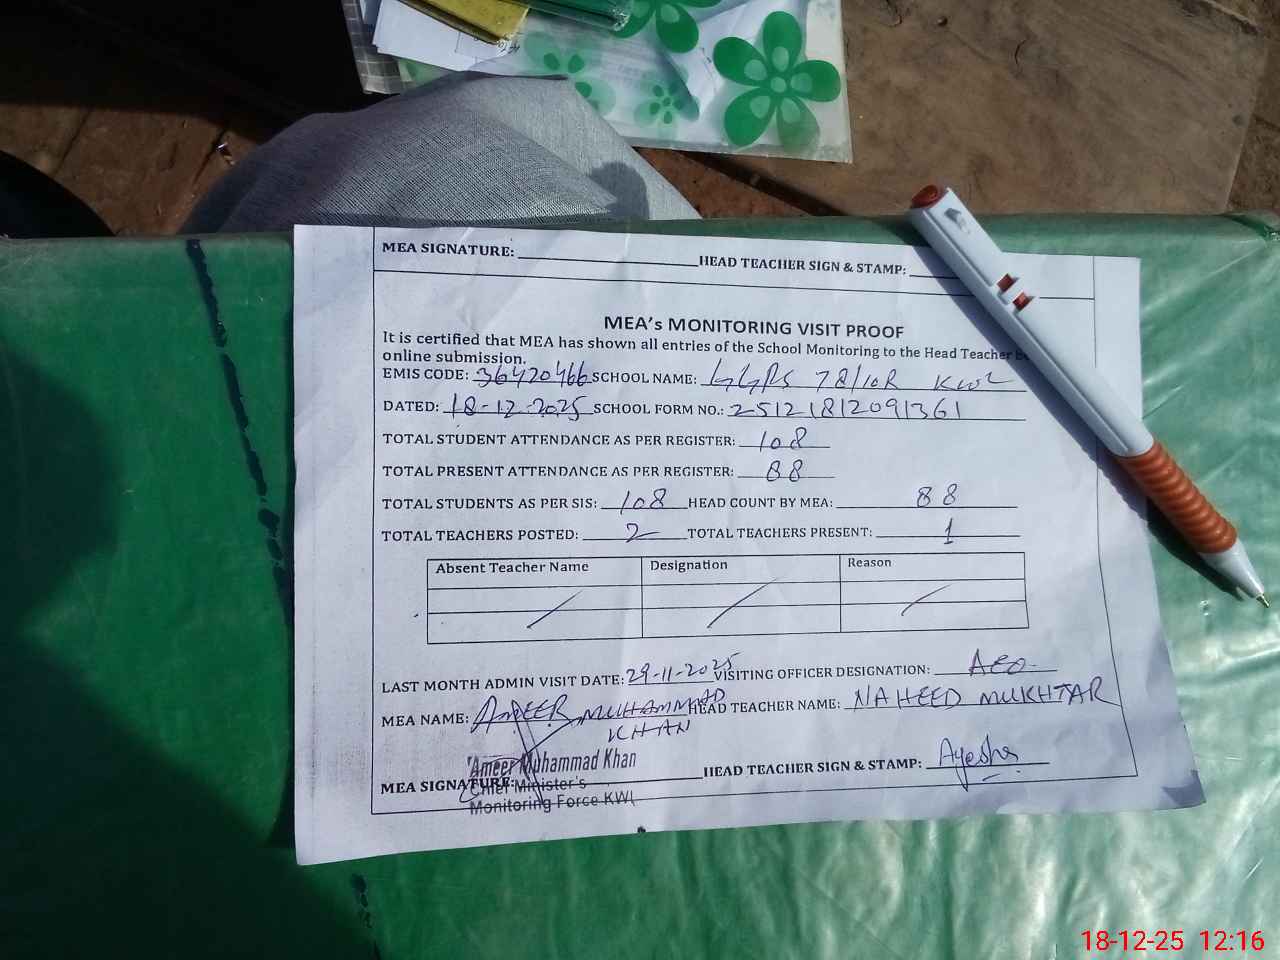 MEA SIGNATURE: HEAD TEACHER SIGN & STAMP:
MEA's MONITORING VISIT PROOF
It is certified that MEA has shown all entries of the School Monitoring to the Head Teacher
online submission.
EMIS CODE: 36420466 SCHOOL NAME: GGPS 78/10R KWL
DATED: 18-12-2025 SCHOOL FORM NO.: 25121812091361
TOTAL STUDENT ATTENDANCE AS PER REGISTER: 108
TOTAL PRESENT ATTENDANCE AS PER REGISTER: 88
TOTAL STUDENTS AS PER SIS: 108 HEAD COUNT BY MEA: 88
TOTAL TEACHERS POSTED: 2 TOTAL TEACHERS PRESENT: 1
Absent Teacher Name Designation Reason
LAST MONTH ADMIN VISIT DATE: 29-11-2025 VISITING OFFICER DESIGNATION: AEO
MEA NAME: AMEER MUHAMMAD KHAN HEAD TEACHER NAME: NAHEED MUKHTAR
MEA SIGNATURE: HEAD TEACHER SIGN & STAMP: Ayesha
Ameer Muhammad Khan
Chief Minister's
Monitoring Force KWL
18-12-25 12:16